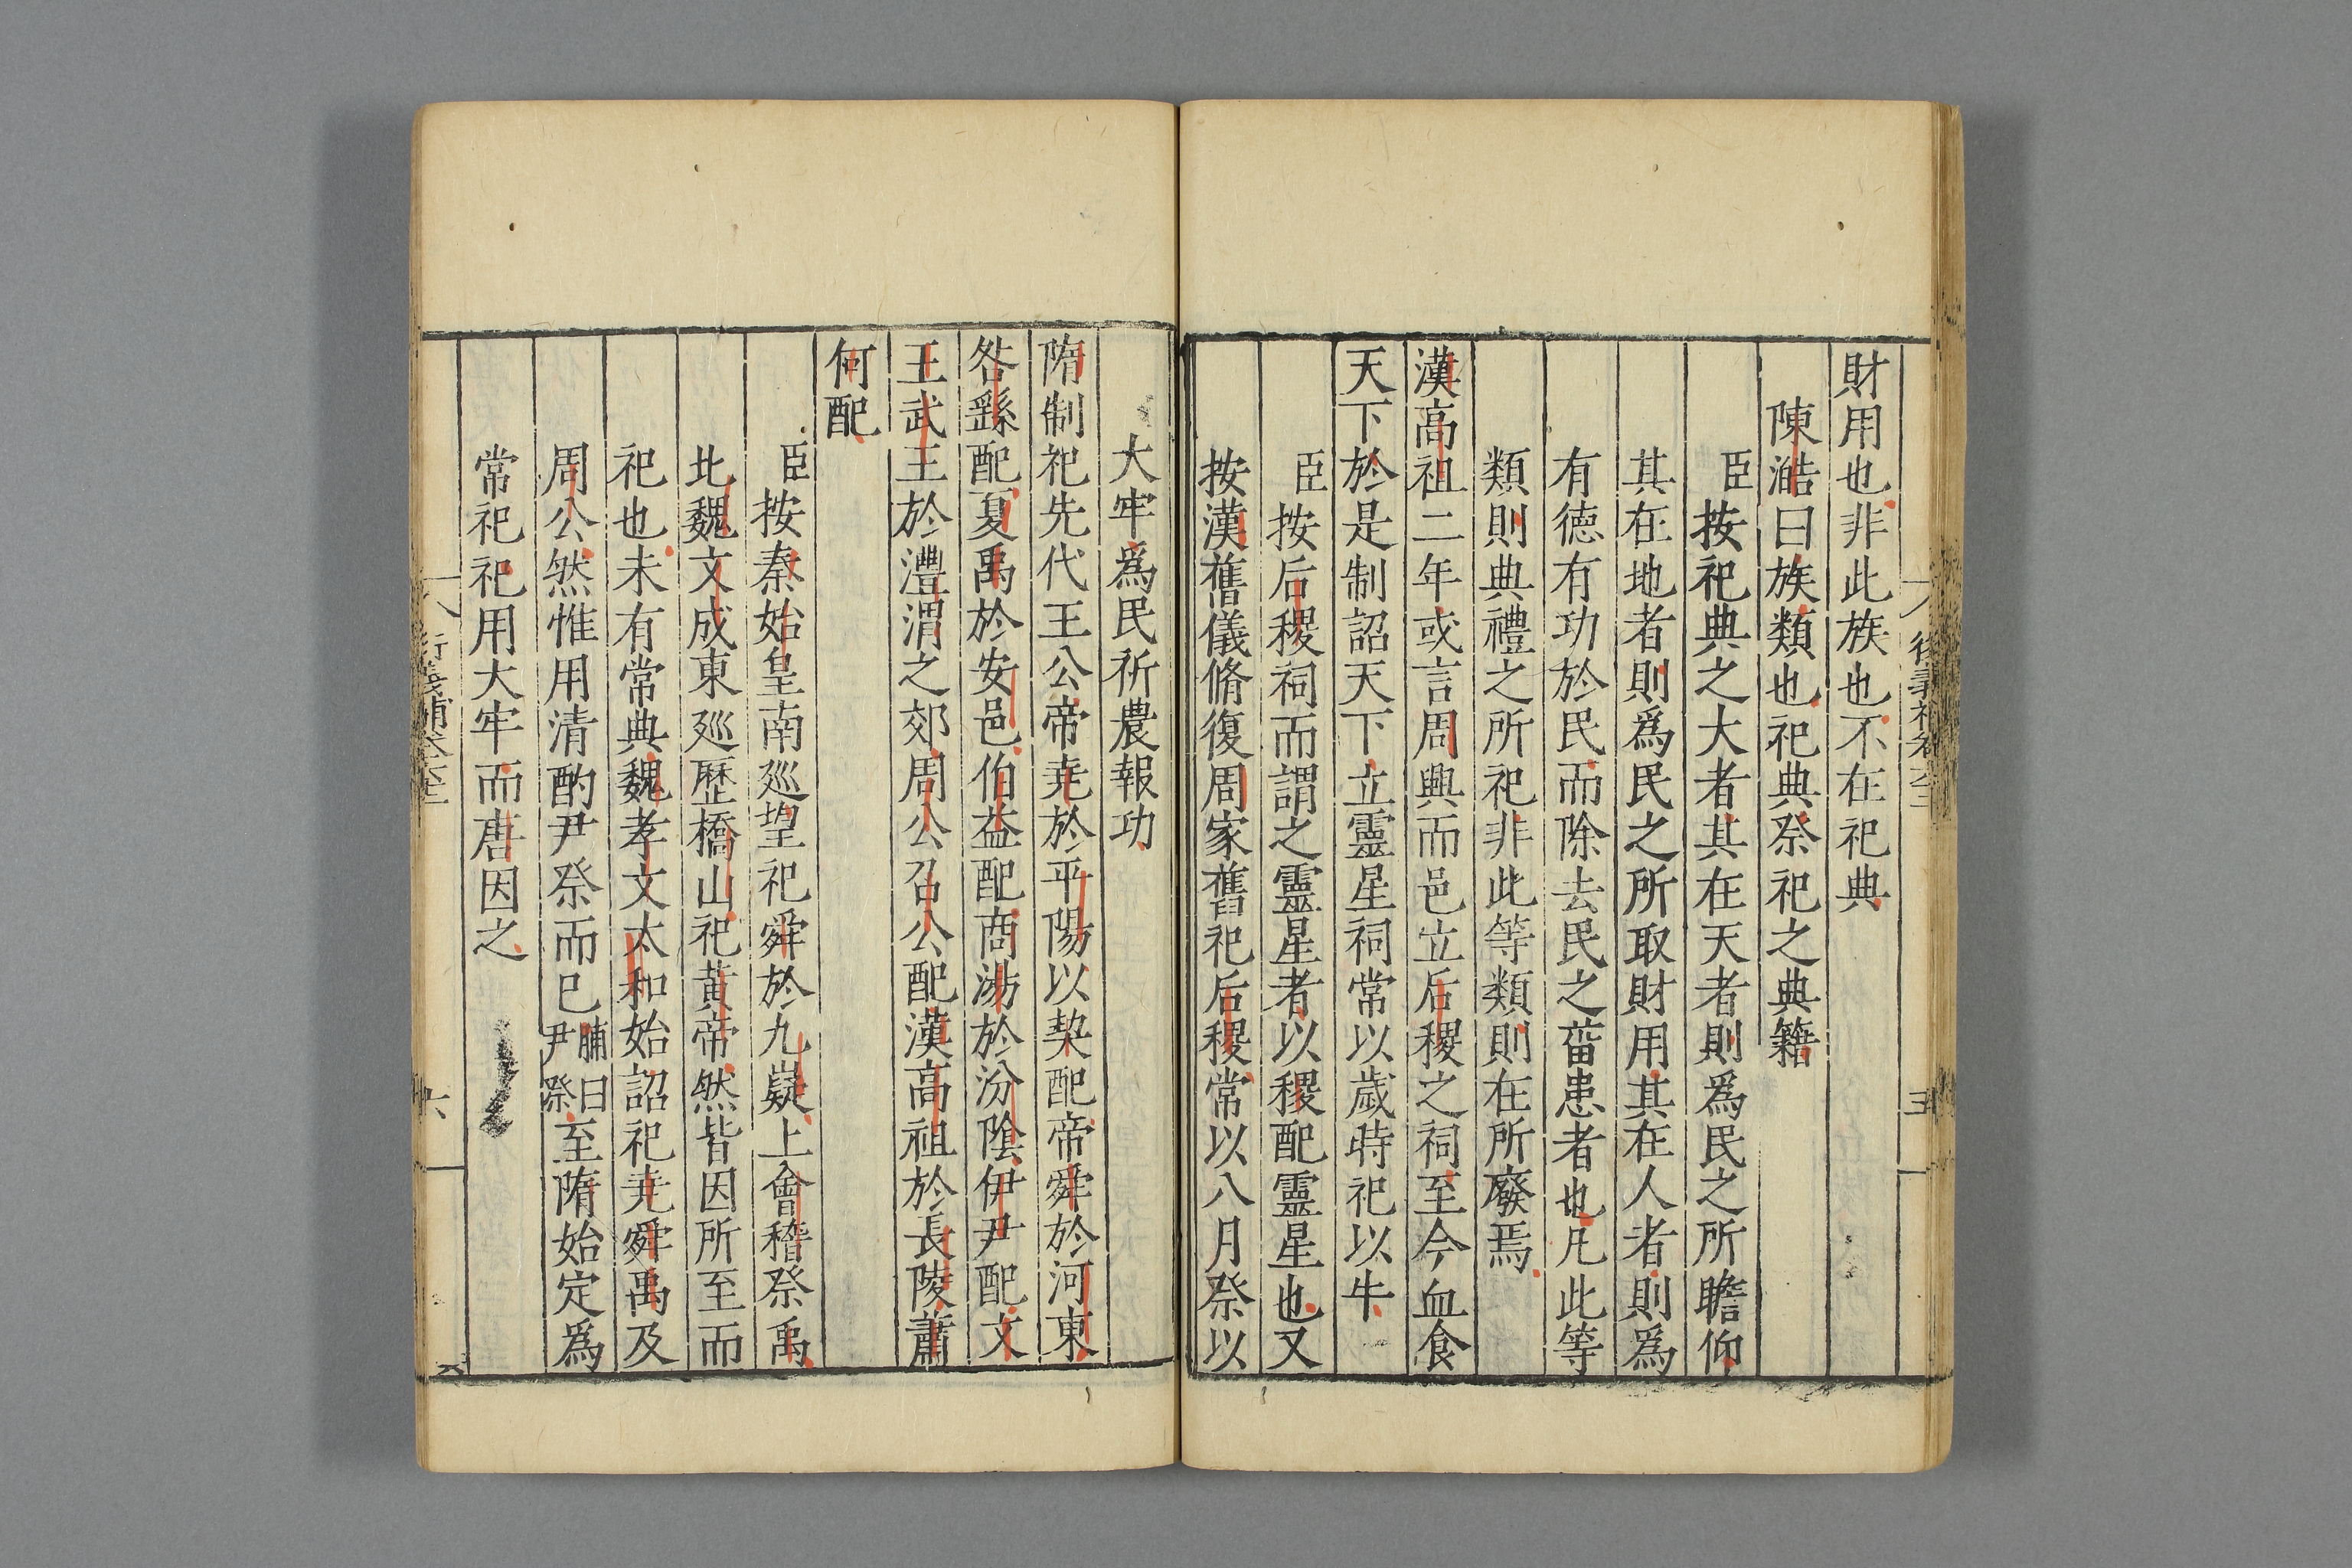 財用也非此族也不在祀典
陳澔曰族類也祀典祭祀之典籍
臣按祀典之大者其在天者則爲民之所瞻仰
其在地者則爲民之所取財用其在人者則爲
有德有功於民而除去民之菑患者也凡此等
類則典禮之所祀非此等類則在所廢焉
漢高祖二年或言周興而邑立后稷之祠至今血食
天下於是制詔天下立靈星祠常以歲時祀以牛
臣按后稷祠而謂之靈星者以稷配靈星也又
按漢舊儀脩復周家舊祀后稷常以八月祭以
大牢爲民祈農報功
隋制祀先代王公帝堯於平陽以契配帝舜於河東
咎繇配夏禹於安邑伯益配商湯於汾陰伊尹配文
王武王於灃渭之郊周公召公配漢高祖於長陵蕭
何配
臣按秦始皇南廵望祀舜於九嶷上會稽祭禹
北魏文成東廵歷橋山祀黃帝然皆因所至而
祀也未有常典魏孝文太和始詔祀堯舜禹及
周公然惟用清酌尹祭而已脯曰尹祭至隋始定爲
常祀祀用大牢而唐因之
六